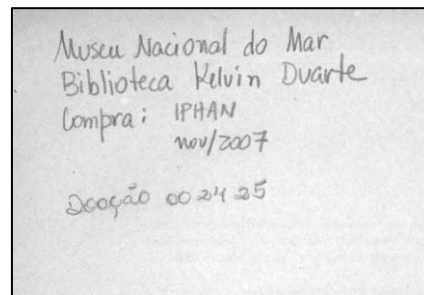 Museu Nacional do Mar
Biblioteca Kelvin Duarte
Compra: IPHAN
nov/2007
Doação 002425